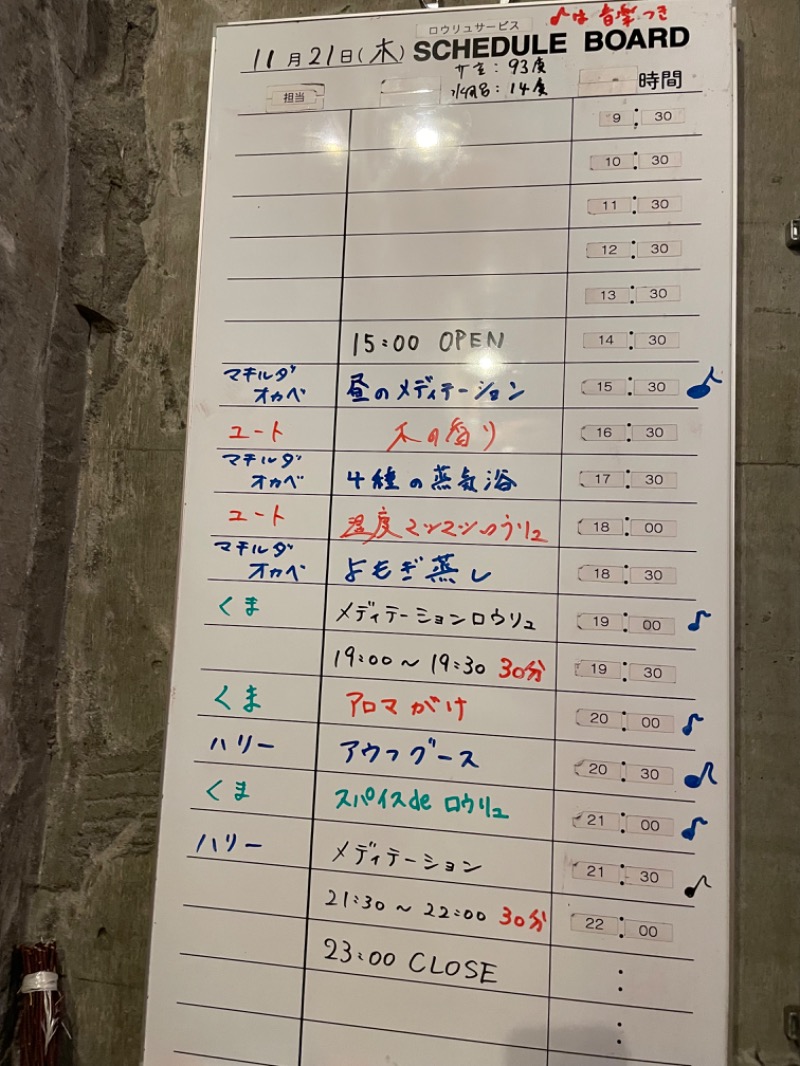 ロウリュサービス
♪は音楽つき
11月21日(木) SCHEDULE BOARD
サ室:93度
水風呂:14度
担当 時間
9:30
10:30
11:30
12:30
13:30
15:00 OPEN 14:30
マチルダ
オカベ 昼のメディテーション 15:30 ♪
ユート 木の香り 16:30
マチルダ
オカベ 4種の蒸気浴 17:30
ユート 湿度マンマンロウリュ 18:00
マチルダ
オカベ よもぎ蒸し 18:30
くま メディテーションロウリュ 19:00 ♪
19:00〜19:30 30分 19:30
くま アロマがけ 20:00 ♪
ハリー アウフグース 20:30 ♪
くま スパイスdeロウリュ 21:00 ♪
ハリー メディテーション 21:30 ♪
21:30〜22:00 30分 22:00
23:00 CLOSE :
: